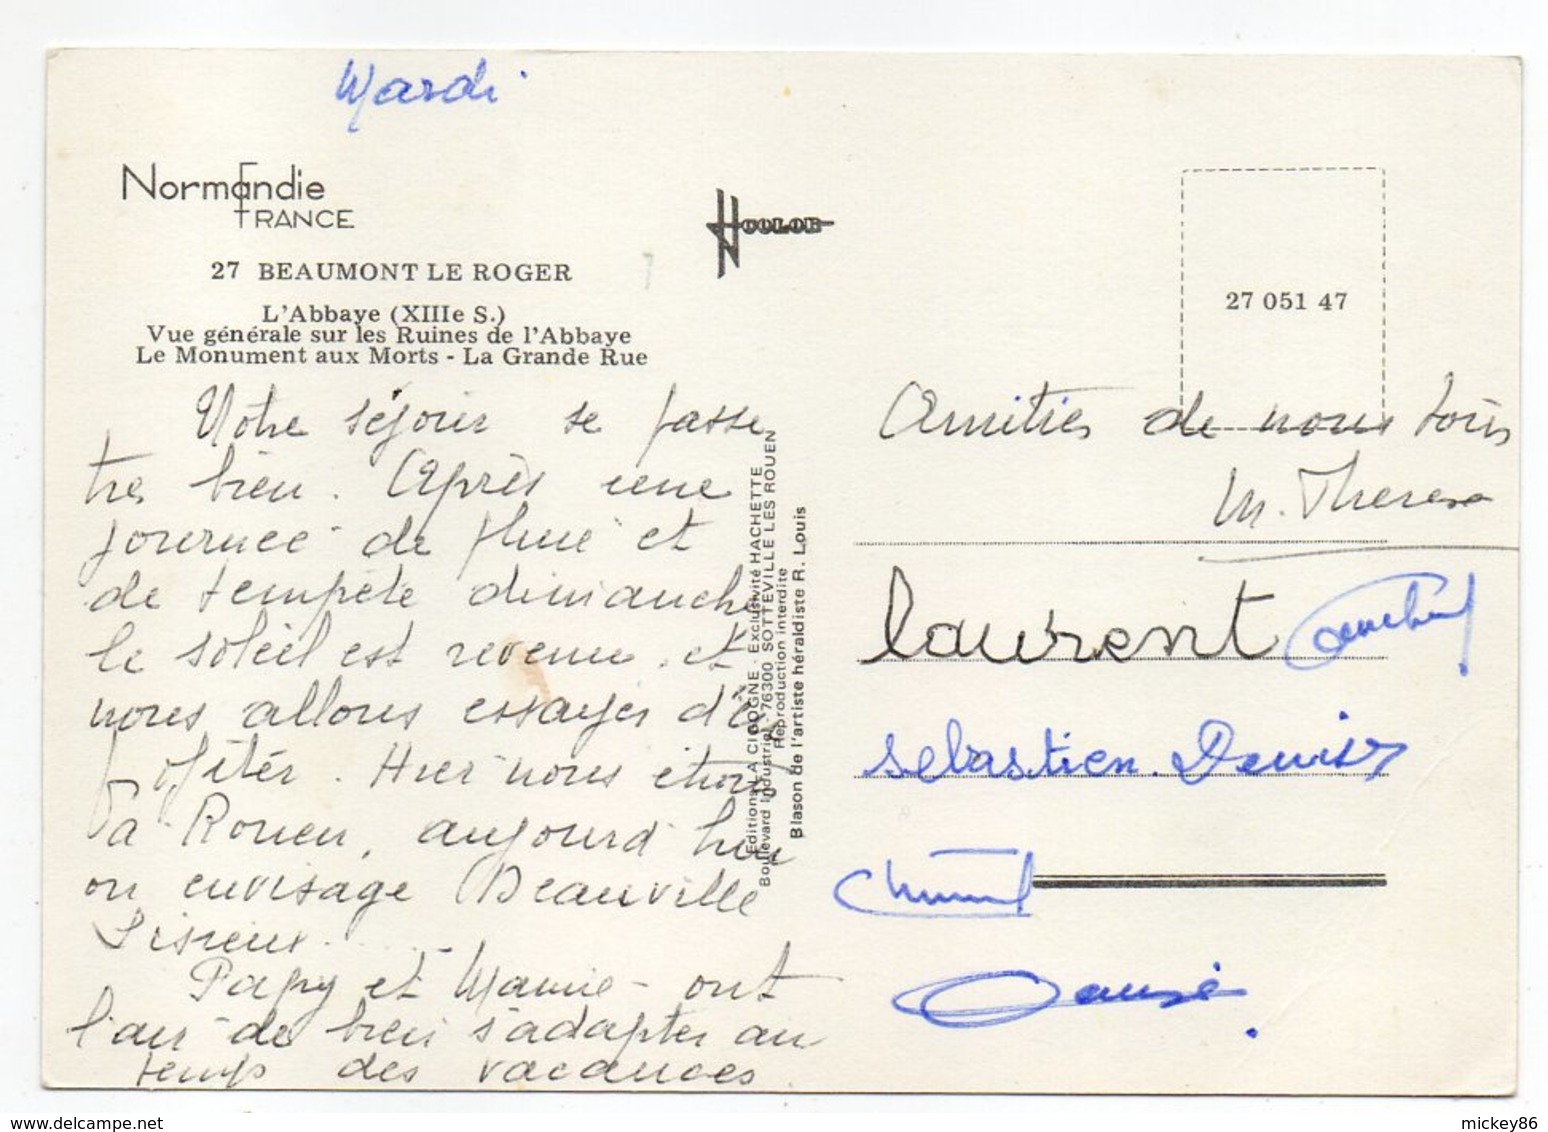 Mardi
Normandie
FRANCE
27 BEAUMONT LE ROGER
L'Abbaye (XIIIe S.)
Vue générale sur les Ruines de l'Abbaye
Le Monument aux Morts - La Grande Rue
Votre séjour se passe
tres bien. Après une
journée de pluie et
de tempête dimanche
le soleil est revenu et
nous allons essayer d'en
profiter. Hier nous étions
à Rouen, aujourd hui
on envisage Deauville
Lisieux
Papy et Mamie - ont
l'air de bien s'adapter au
temps des vacances
Editions LA CIGOGNE - Exclusivité HACHETTE
Boulevard Industriel - 76300 SOTTEVILLE LES ROUEN
Reproduction interdite
Blason de l'artiste héraldiste R. Louis
COLOR
27 051 47
Amitiés de nous tous
M. Therese
laurent
sébastien. Denis